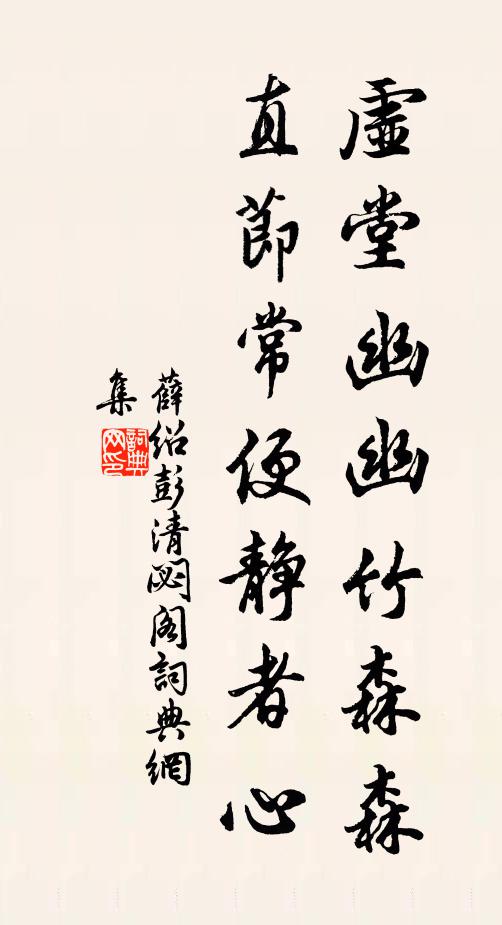 虚堂幽幽竹森森
直節常便静者心
薛绍彭清閟阁詞典網
集
詞典网印